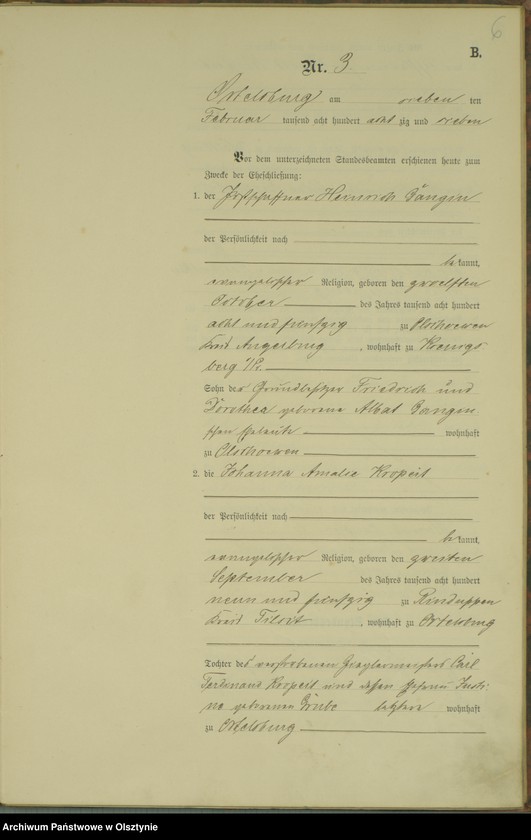 6
B.
Nr. 3
Ortelsburg am sieben ten
Februar tausend acht hundert acht zig und sieben
Vor dem unterzeichneten Standesbeamten erschienen heute zum
Zwecke der Eheschließung:
1. der Heinrich Gängin
der Persönlichkeit nach
be kannt,
evangelischer Religion, geboren den zwoelften
October des Jahres tausend acht hundert
acht und fünfzig zu Olschoewen
Kreis Angerburg, wohnhaft zu Koenigs
berg i/Pr.
Sohn der Grundbesitzer Friedrich und
Dorothea geborene Albat Gängin
schen Eheleute wohnhaft
zu Olschoewen
2. die Johanna Amalie Kropeit
der Persönlichkeit nach
be kannt,
evangelischer Religion, geboren den zweiten
September des Jahres tausend acht hundert
neun und fünfzig zu
Kreis Tilsit, wohnhaft zu Ortelsburg
Tochter des verstorbenen Zieglermeisters Carl
Ferdinand Kropeit und dessen Ehefrau Justi-
ne geborene Grube letztere wohnhaft
zu Ortelsburg
Archiwum Państwowe w Olsztynie